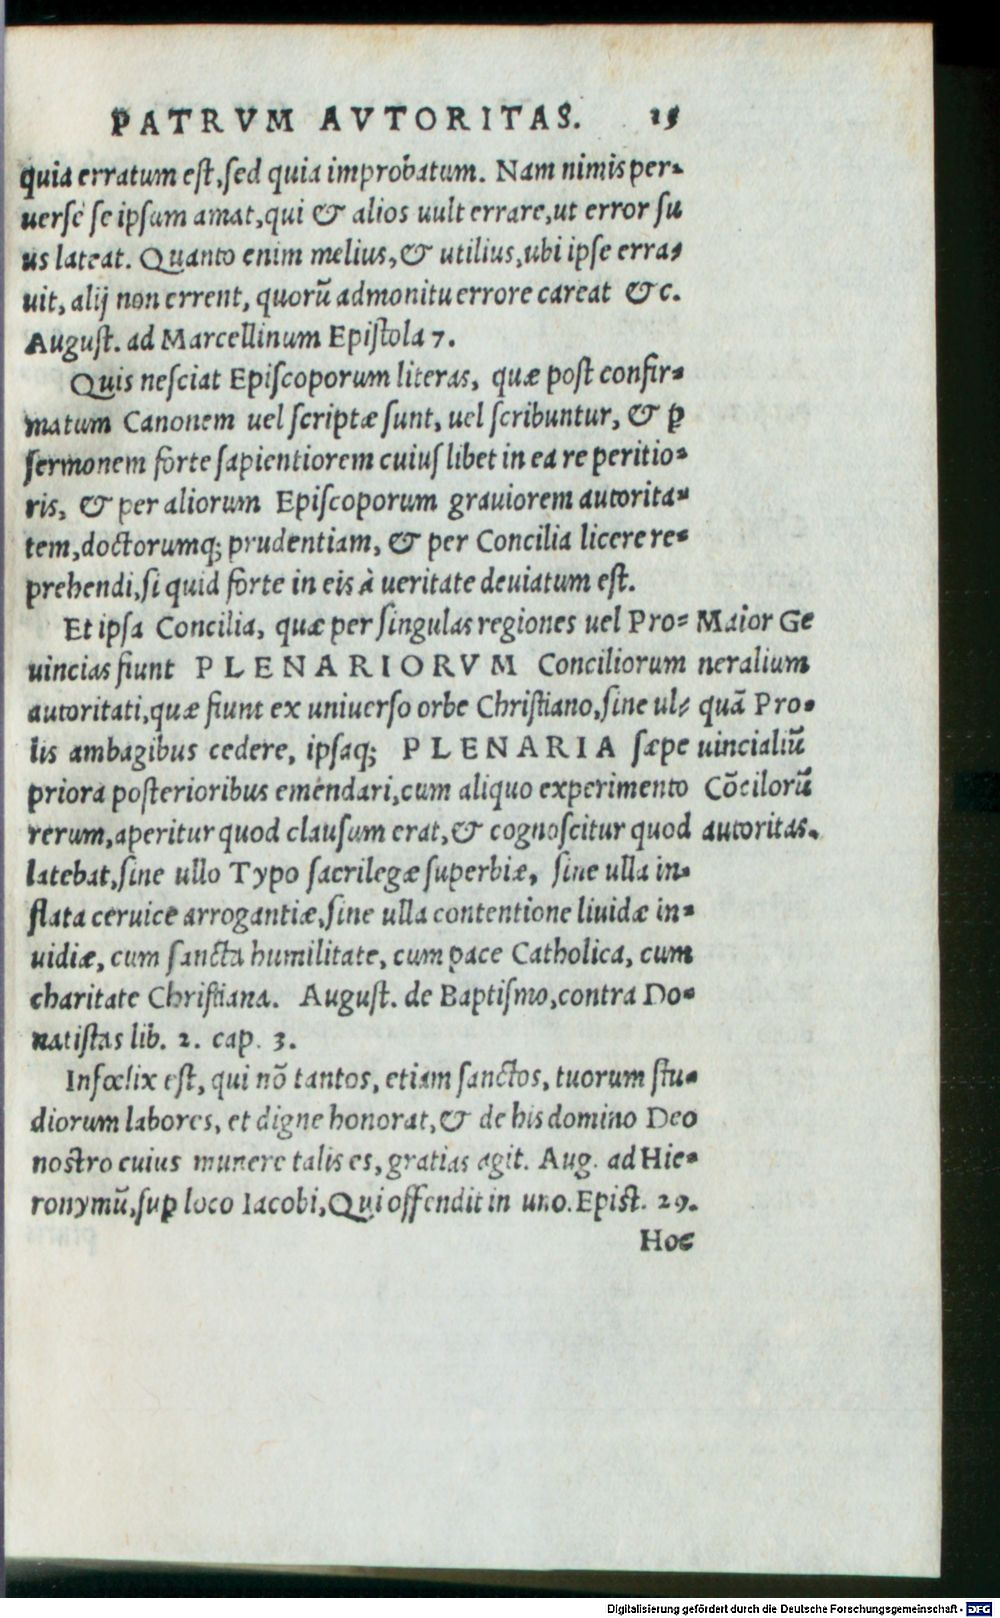 PATRVM AVTORITAS. 15
quia erratum eſt, ſed quia improbatum. Nam nimis per-
uerſe ſe ipſum amat, qui & alios uult errare, ut error ſu
us lateat. Quanto enim melius, & utilius, ubi ipſe erra-
uit, alij non errent, quorū admonitu errore careat &c.
Auguſt. ad Marcellinum Epiſtola 7.
Quis neſciat Epiſcoporum literas, quæ poſt confir-
matum Canonem uel ſcriptæ ſunt, uel ſcribuntur, & ꝑ
ſermonem forte ſapientiorem cuiuſlibet in ea re peritio-
ris, & per aliorum Epiſcoporum grauiorem autorita-
tem, doctorumq; prudentiam, & per Concilia licere re-
prehendi, ſi quid forte in eis à ueritate deuiatum eſt.
Et ipſa Concilia, quæ per ſingulas regiones uel Pro-
uincias fiunt PLENARIORVM Conciliorum
autoritati, quæ fiunt ex uniuerſo orbe Chriſtiano, ſine ul-
lis ambagibus cedere, ipſaq; PLENARIA ſæpe
priora poſterioribus emendari, cum aliquo experimento
rerum, aperitur quod clauſum erat, & cognoſcitur quod
latebat, ſine ullo Typo ſacrilegæ ſuperbiæ, ſine ulla in-
flata ceruice arrogantiæ, ſine ulla contentione liuidæ in-
uidiæ, cum ſancta humilitate, cum pace Catholica, cum
charitate Chriſtiana. Auguſt. de Baptiſmo, contra Do-
natiſtas lib. 2. cap. 3.
Maior Ge
neralium
quā Pro-
uincialiū
Cōcilorū
autoritas.
Infœlix eſt, qui nō tantos, etiam ſanctos, tuorum ſtu-
diorum labores, et digne honorat, & de his domino Deo
noſtro cuius munere talis es, gratias agit. Aug. ad Hie-
ronymū, ſuꝑ loco Iacobi, Qui offendit in uno. Epiſt. 29.
Hoc
Digitalisierung gefördert durch die Deutsche Forschungsgemeinschaft - DFG